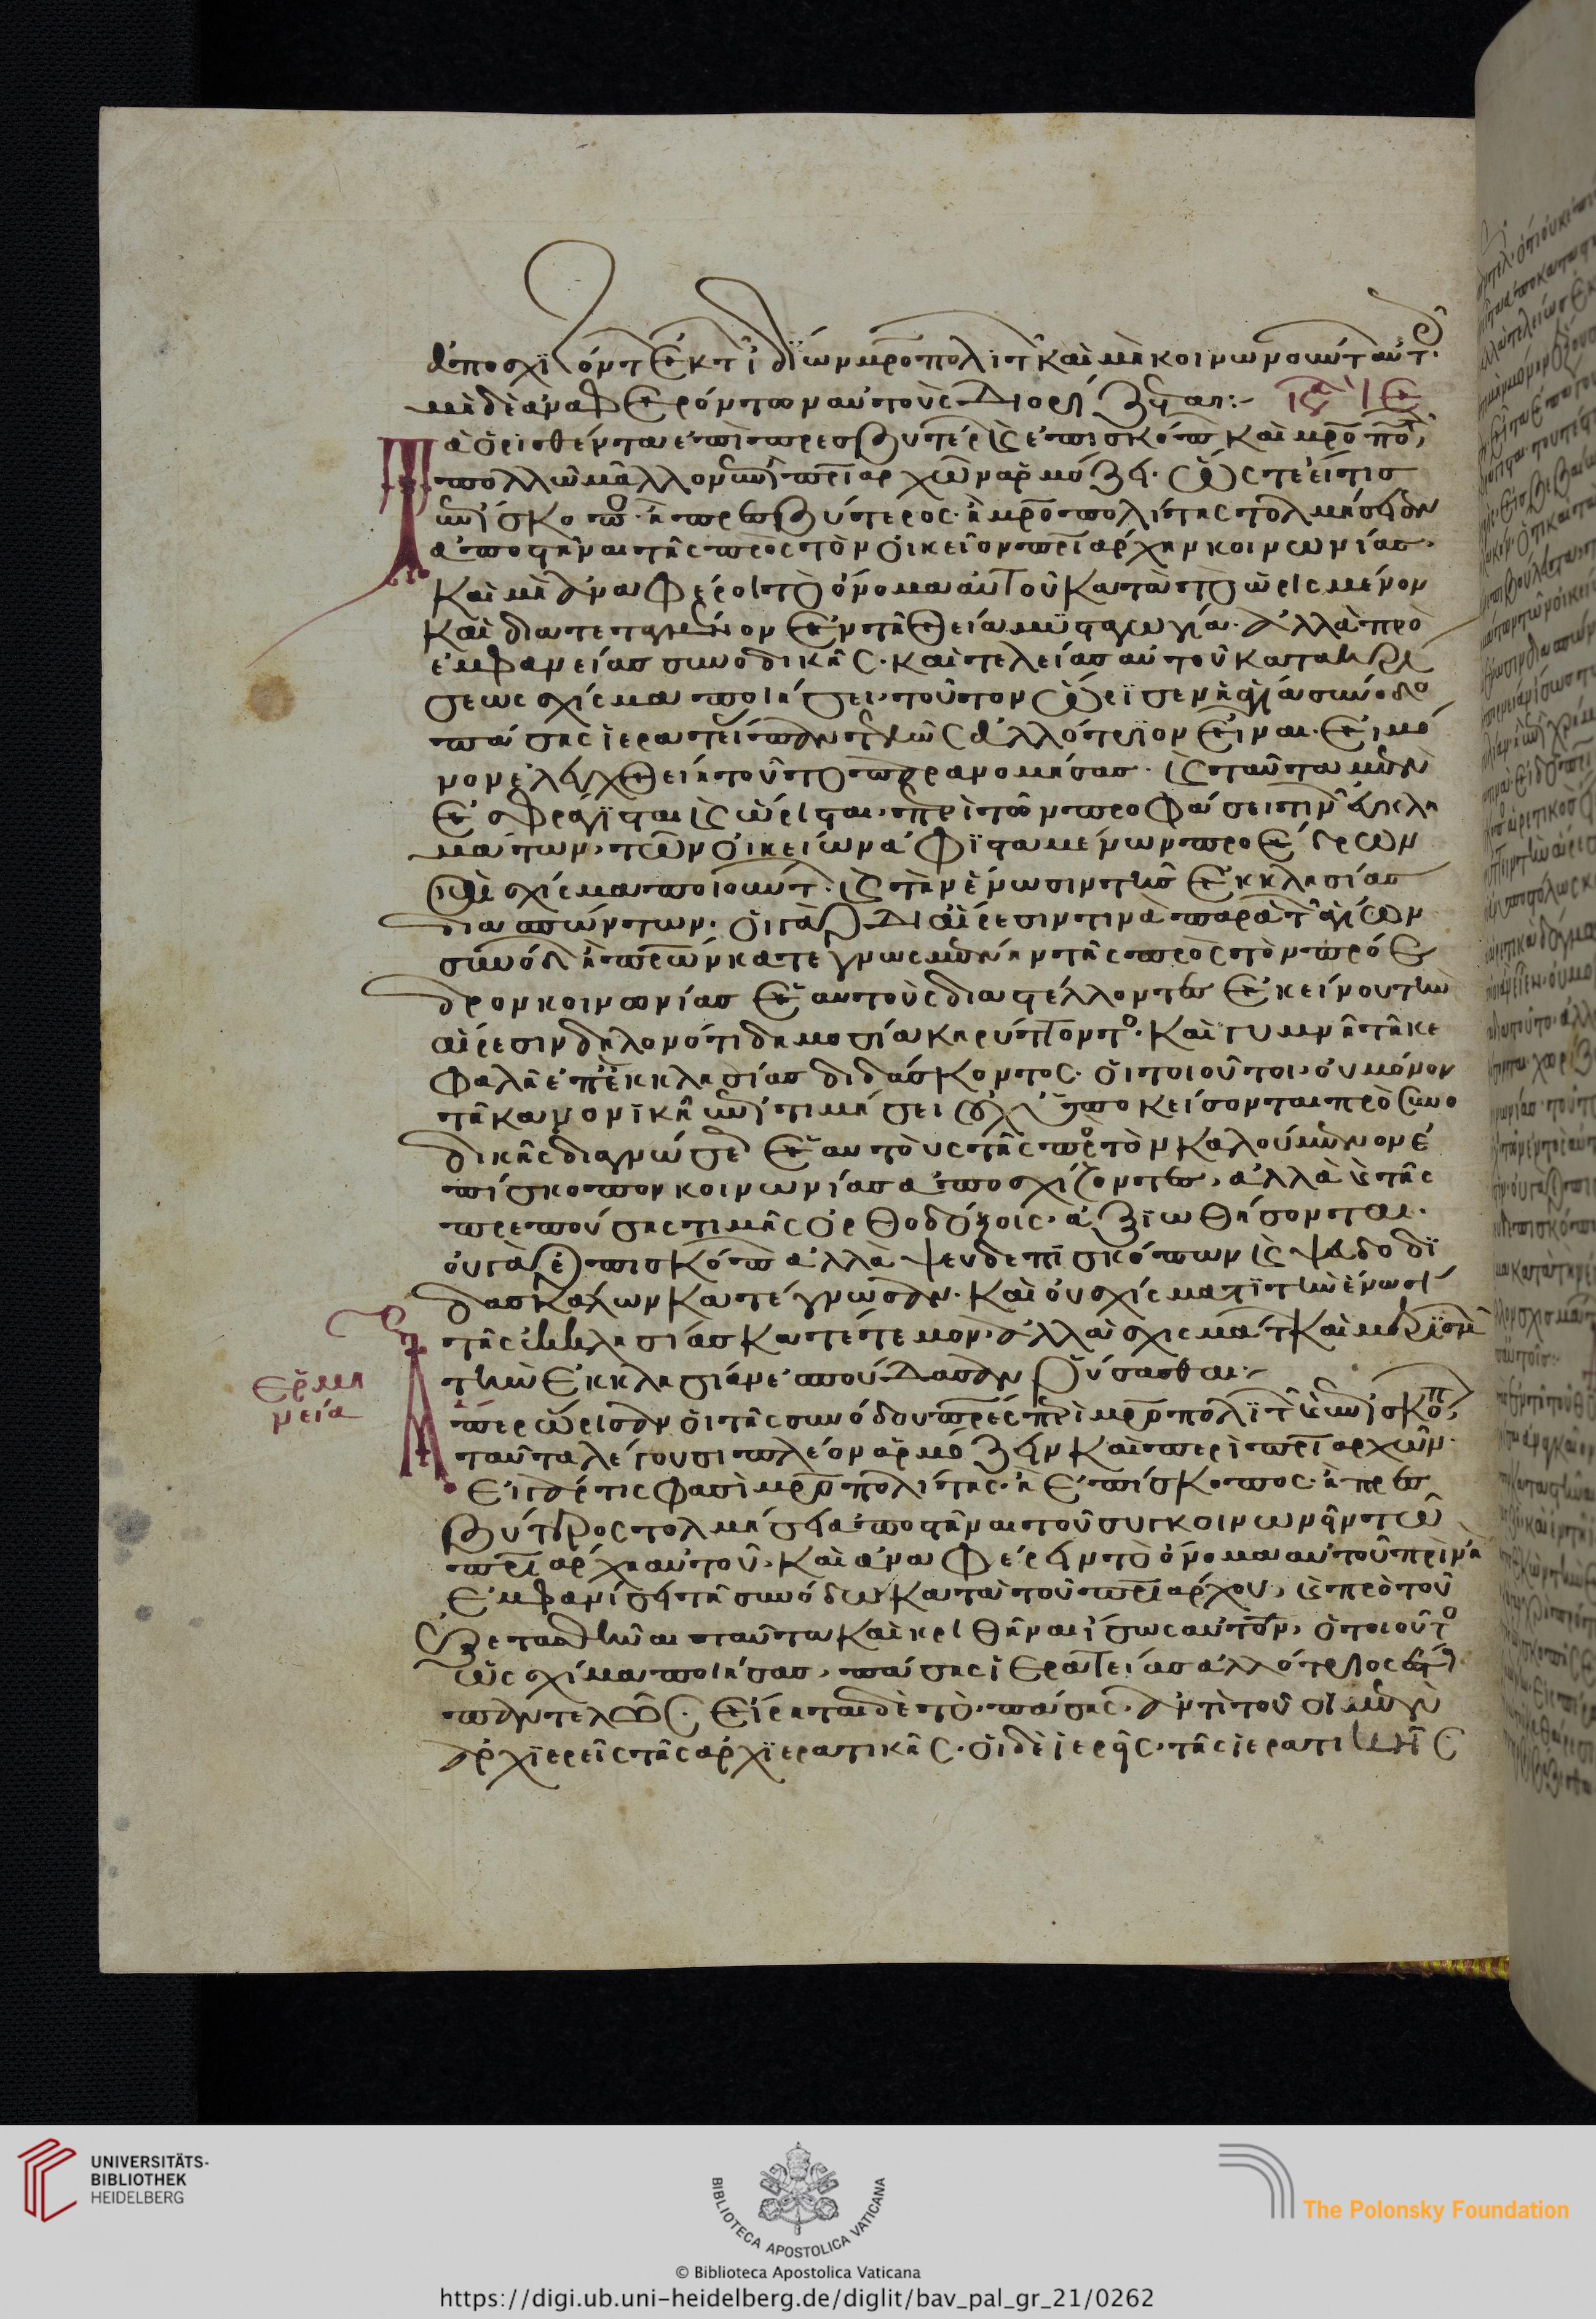 ἀποσχιζόντ ἐκ τ ἰδίων μροπολιτ καὶ μὴ κοινωνούντ αὐτ.
μηδὲ ἀναφερόντων αὐτοὺς διορίζεται:- 
Τὰ ὁρισθέντα ἐπὶ πρεσβυτέρ κ ἐπισκόπ καὶ μροπολ,
πολλῷ μᾶλλον ἐπὶ πριαρχῶν ἁρμόζει. ὥστε εἴ τις
ἐπίσκοπο. ἢ πρεσβύτερος. ἢ μροπολίτης τολμήσειεν
ἀποστῆναι τῆς πρὸς τὸν οἰκεῖον πριάρχην κοινωνίας.
καὶ μὴ ἀναφέροι τὸ ὄνομα αὐτοῦ κατὰ τὸ ὡρισμένον
καὶ διατεταγμένον ἐν τῆ θεία μυσταγωγία. ἀλλὰ πρὸ
ἐμφανείας συνοδικῆς. καὶ τελείας αὐτοῦ κατακρί
σεως σχίσμα ποιήσει, τοῦτον ὥρισεν ἡ ἁγία σύνοδο
πάσης ἱερατείας παντελῶς ἀλλότριον εἶναι. εἰ μό
νον ἐλεγχθείη τοῦτο παρανομήσας. κ ταῦτα μὲν
ἐσφράγισται κ ὥρισται, περὶ τῶν προφάσει τιν ἐγκλη
μάτων, τῶν οἰκείων ἀφισταμένων προέδρων
καὶ σχίσμα ποιούντ. κ τὴν ἕνωσιν τῆς ἐκκλησίας
διασπώντων. οἱ γὰρ δι αἵρεσιν τινὰ παρὰ τ ἁγίων
συνόδ ἢ πρων κατεγνωσμένην τῆς πρὸς τὸν πρόε
δρον κοινωνίας ἑαυτοὺς διαστέλλοντες ἐκείνου τὴν
αἵρεσιν δηλονότι δημοσία κηρύττοντο. καὶ γυμνῆ τῆ κε
φαλῆ ἐπ ἐκκλησίας διδάσκοντος. οἱ τοιοῦτοι, οὐ μόνον
τῆ κανονικῆ ἐπιτιμήσει οὐχ ὑποκείσονται πρὸ συνο
δικῆς διαγνώσε ἑαυτοὺς τῆς προ τὸν καλούμενον ἐ
πίσκοπον κοινωνίας ἀποσχίζοντες, ἀλλὰ κ τῆς
πρεπούσης τιμῆς ὀρθοδόξοις, ἀξιωθήσονται.
οὐ γὰρ ἐπισκόπ ἀλλὰ ψευδεπισκόπων κ ψευδοδι
δασκάλων κατέγνωσαν. καὶ οὐ σχίσματι τὴν ἕνωσι
τῆς ἐκκλησίας κατέτεμον, ἀλλὰ σχισμάτ καὶ μερισμ
τὴν ἐκκλησίαν ἐσπούδασαν ῥύσασθαι:-
Ἑρμη
νεία
Ἅπερ ὥρισαν οἱ τῆς συνόδου πρες περὶ μροπολιτ κ ἐπισκόπ,
ταῦτα λέγουσι πλέον ἁρμόζειν καὶ περὶ πριαρχῶν.
Εἰ γάρ τις φασὶ μροπολίτης. ἢ ἐπίσκοπος. ἢ πρεσ
βύτερος τολμήσει ἀποστῆναι τοῦ συγκοινωνεῖν τῶ
πριάρχη αὐτοῦ, καὶ ἀναφέρειν τὸ ὄνομα αὐτοῦ πρὶν ἢ
ἐμφανίσει τῆ συνόδω κατὰ τοῦ πριάρχου, κ πρὸ τοῦ
ἐξετασθῆναι ταῦτα καὶ κριθῆναι ἴσως αὐτόν, ὁ τοιοῦτο
ὡς σχίσμα ποιήσας, πάσης ἱερατείας ἀλλότριος ἔσται
παντελῶς. εἴρηται δὲ τὸ, πάσης, ἀντὶ τοῦ οἱ μὲν
ἀρχιερεῖς τῆς ἀρχιερατικῆς. οἱ δὲ ἱερεῖς, τῆς ἱερατικῆς
UNIVERSITÄTS-
BIBLIOTHEK
HEIDELBERG
BIBLIOTECA APOSTOLICA VATICANA
The Polonsky Foundation
© Biblioteca Apostolica Vaticana
https://digi.ub.uni-heidelberg.de/diglit/bav_pal_gr_21/0262